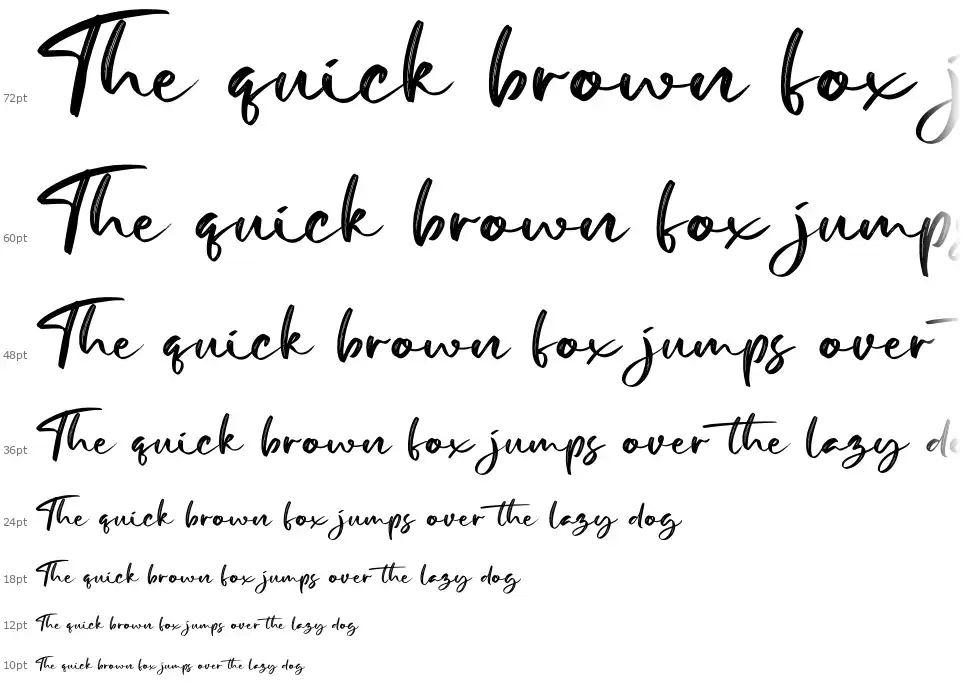 72pt The quick brown fox j
60pt The quick brown fox jumps
48pt The quick brown fox jumps over
36pt The quick brown fox jumps over the lazy do
24pt The quick brown fox jumps over the lazy dog
18pt The quick brown fox jumps over the lazy dog
12pt The quick brown fox jumps over the lazy dog
10pt The quick brown fox jumps over the lazy dog